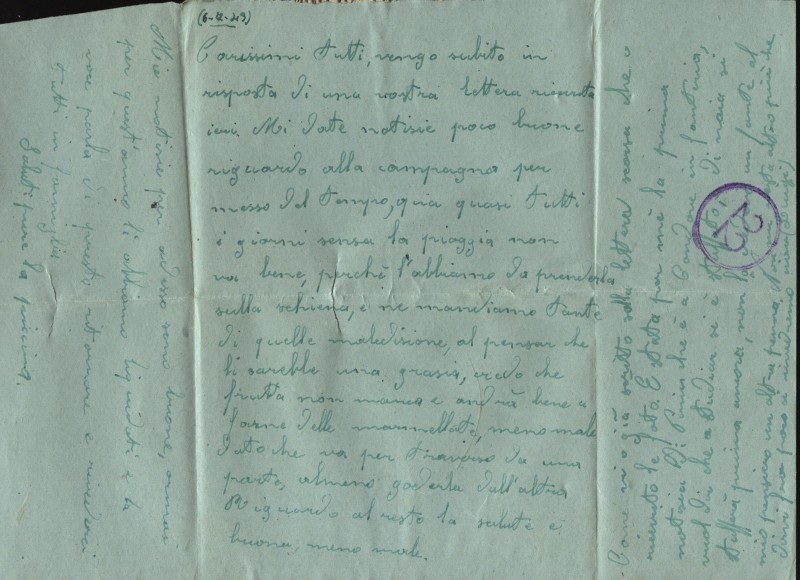 (6-7-43)
Carissimi tutti, vengo subito in
risposta di una vostra lettera ricevuta
ieri. Mi date notizie poco buone
riguardo alla campagna per
messo del tempo, qua quasi tutti
i giorni sensa la pioggia non
va bene, perchè l'abbiamo da prenderla
sulla schiena, e ne mandiamo tante
di quelle maledisione, al pensar che
lì sareble una grasia, credo che
fruta non manca e andrà bene a
farne delle marmellate, meno male
dato che va per traverso da una
parte, almeno goderla dall'altra
Riguardo al resto la salute è
buona, meno male.
Come vi o già scritto sulla lettera scorsa che o
ricevuto le foto. E stata per mè la prima
notisia di Pinin che è a
vuol dir che a studiar si è stufato, di naia si
stufferà prima ancora, non
mio pensiero un'altra pena. Non mi resta altro più che
dirvi
Mie notisie per adesso sono buone, ormai
per quest'anno li abbiamo liquidati e la
voce parla di presto ritornare e rivederci
tutti in famiglia
Saluti fiera la
22